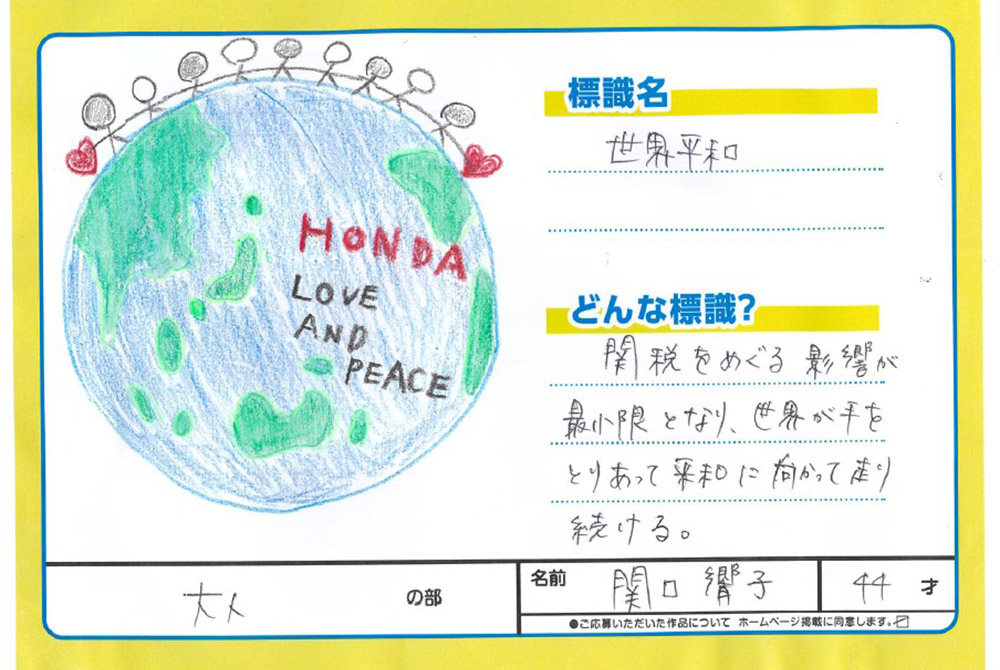 HONDA
LOVE
AND
PEACE
標識名
世界平和
どんな標識?
関税をめぐる影響が
最小限となり、世界が手を
とりあって平和に向かって走り
続ける。
大人 の部
名前 関口 響子 44 才
●ご応募いただいた作品について ホームページ掲載に同意します。☑